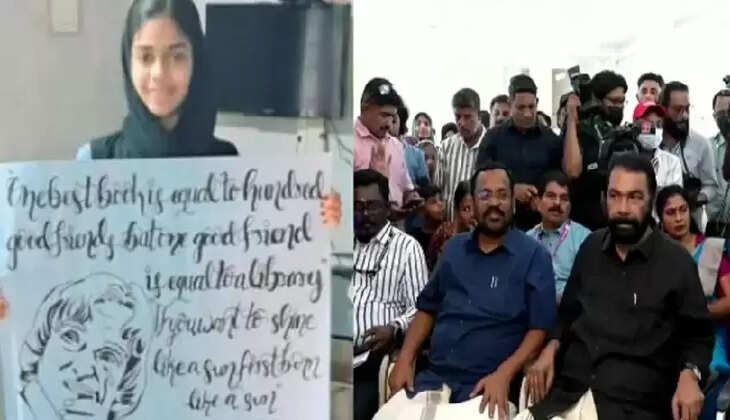 "One best book is equal to hundred
good friends but one good friend
is equal to a library"
If you want to shine
like a sun first burn
like a sun"